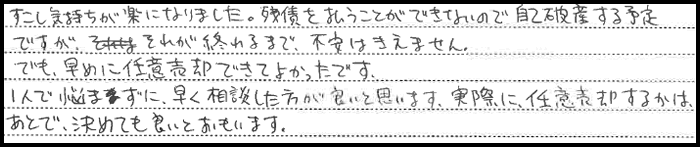 すこし気持ちが楽になりました。残債を払うことができないので自己破産する予定
ですが、それが終わるまで、不安はきえません。
でも、早めに任意売却できてよかったです。
1人で悩まずに、早く相談した方が良いと思います。実際に、任意売却するかは、
あとで、決めても良いとおもいます。